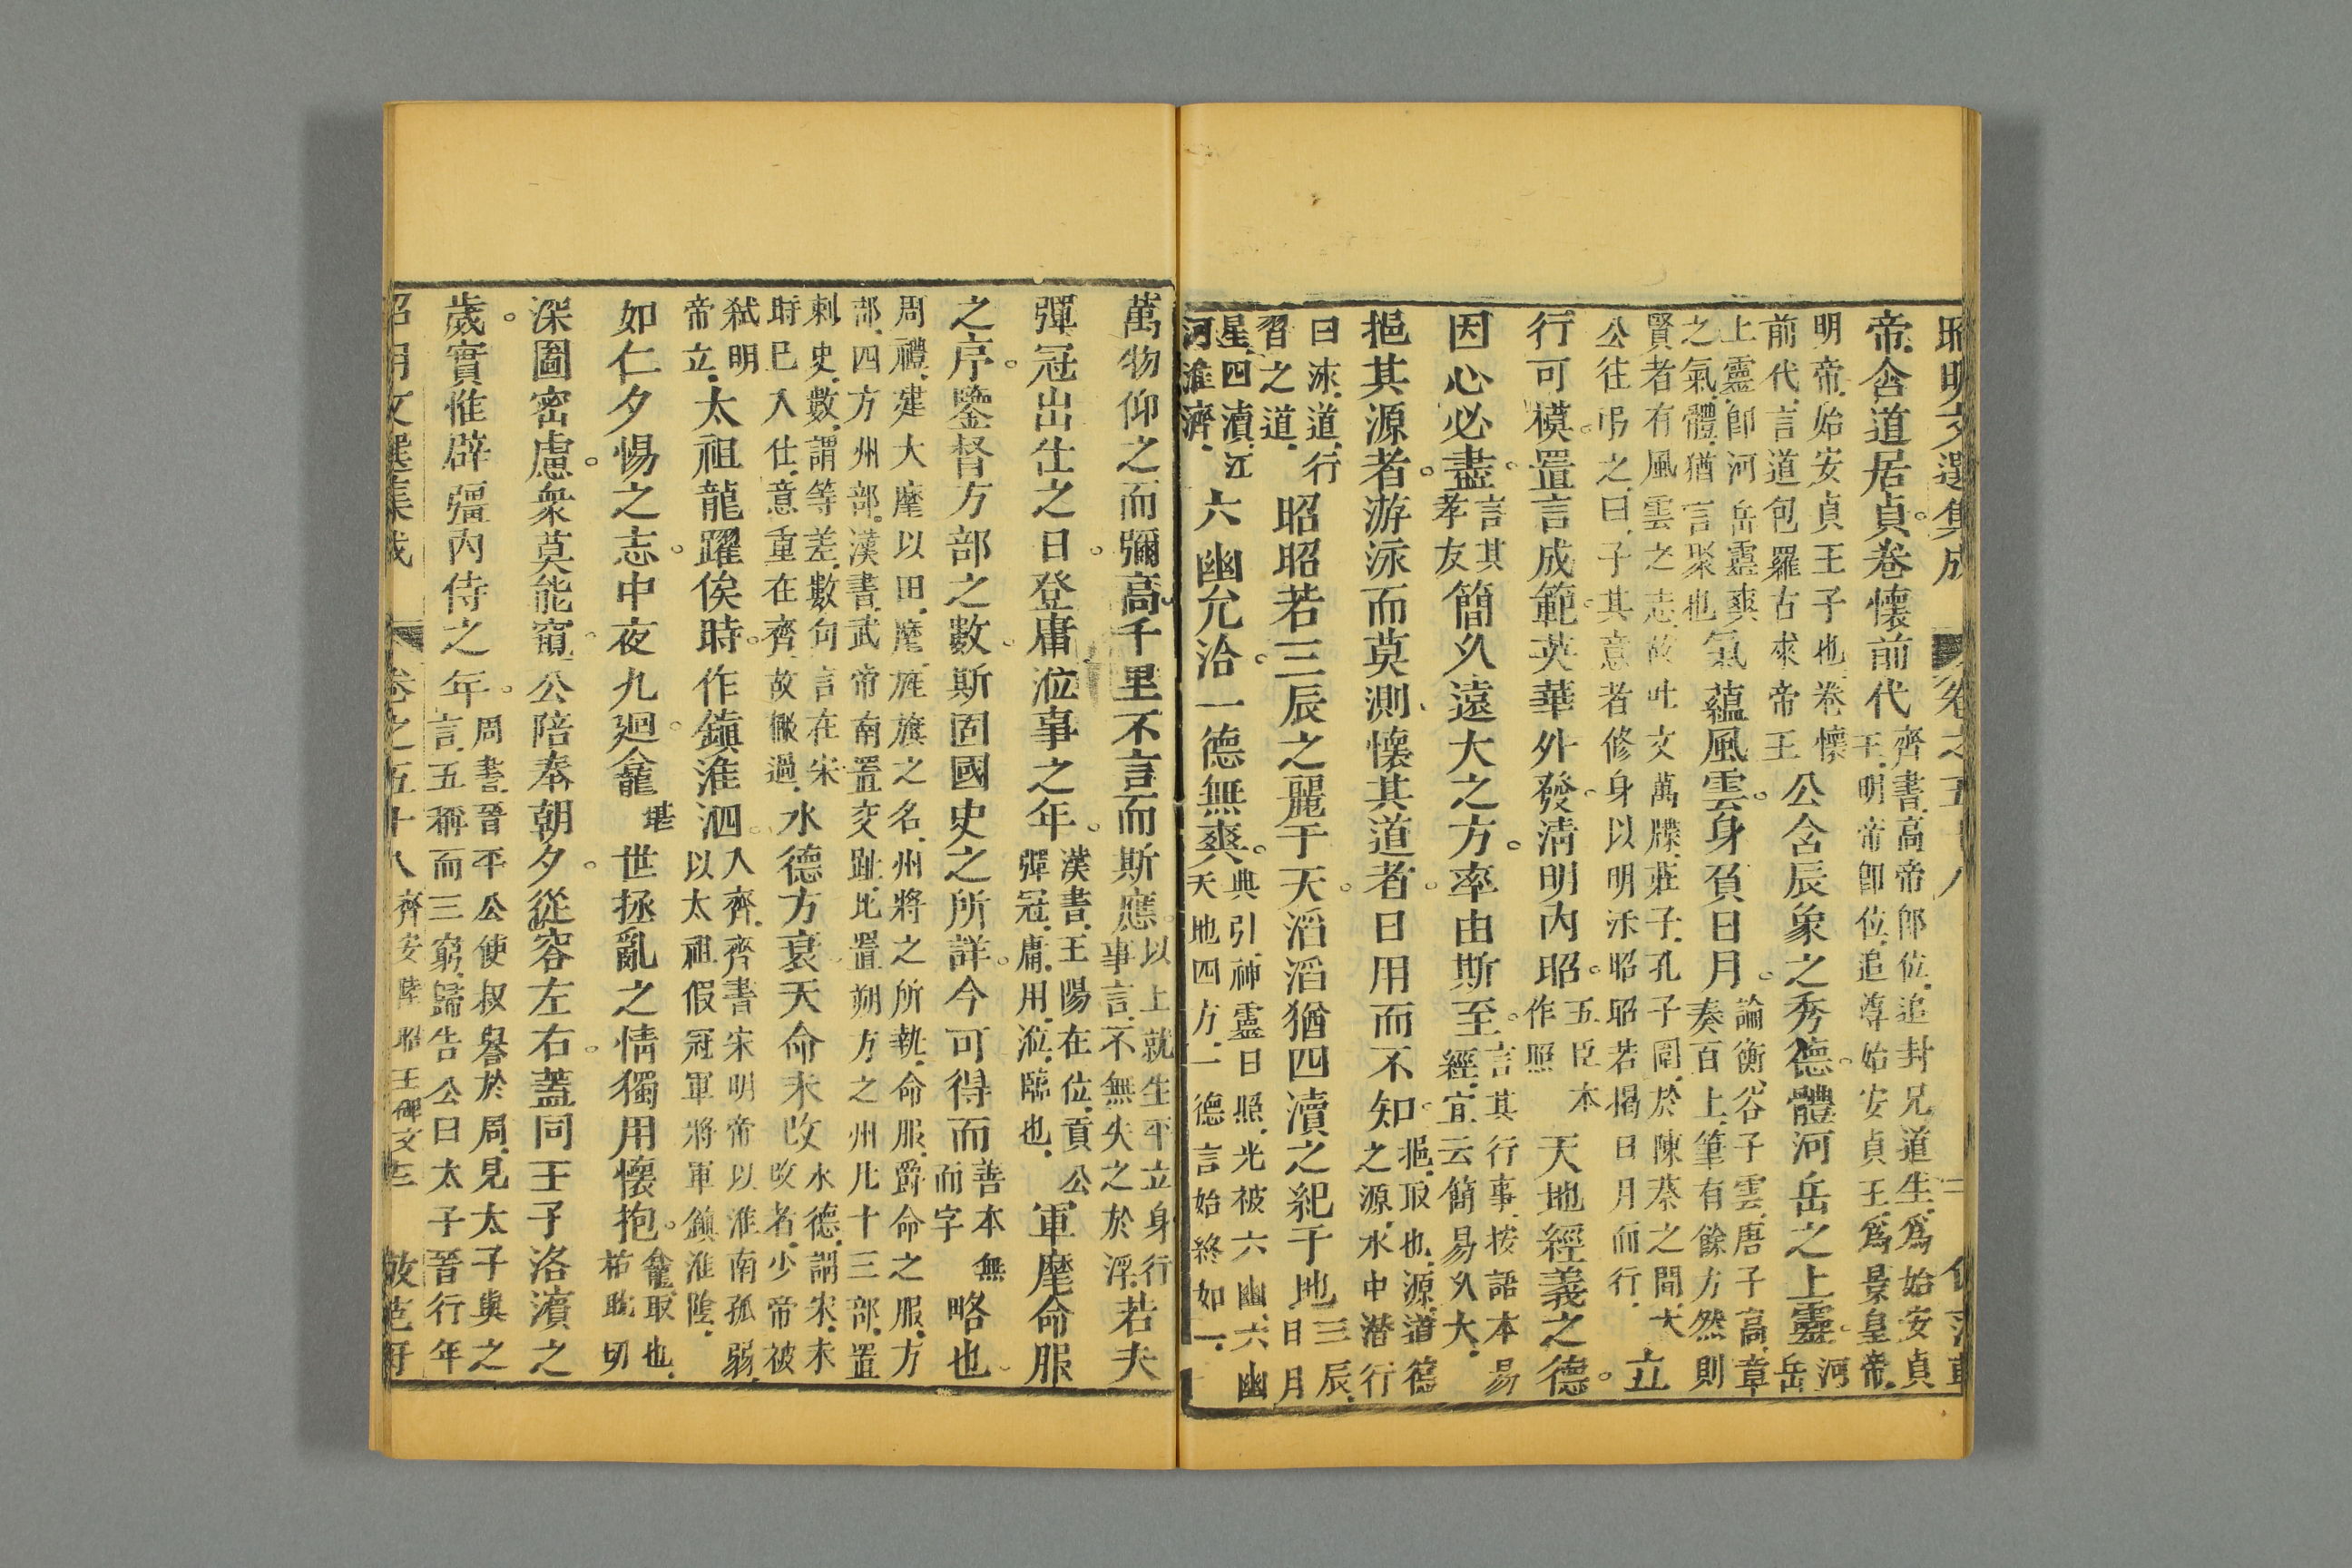 昭明文選集成 卷之五十八
帝含道居貞卷懷前代齊書高帝郎位追封兄道生爲始安貞
王明帝卽位追尊始安貞王爲景皇帝
明帝始安貞王子也卷懷
前代言道包羅古來帝王公含辰象之秀德體河岳之上靈河
岳
上靈卽河岳靈爽
之氣體猶言聚也氣蘊風雲身負日月論衡谷子雲唐子高章
奏百上筆有餘方然則
賢者有風雲之志故吐文萬牒莊子孔子圍於陳蔡之間大
公往弔之曰子其意者修身以明汙昭昭若揭日月而行立
行可模置言成範英華外發淸明內昭五臣本
作照天地經義之德
因心必盡言其
孝友簡久遠大之方率由斯至言其行事按語本易
經宜云簡易久大
挹其源者游泳而莫測懷其道者日用而不知挹取也源道德
之源水中潛行
曰泳道行
習之道昭昭若三辰之麗于天滔滔猶四瀆之紀于地三辰
日月
星四瀆江
河淮濟六幽允洽一德無爽典引神靈日照光被六幽六幽
天地四方一德言始終如一
萬物仰之而彌高千里不言而斯應以上就生平立身行
事言不無失之於浮若夫
彈冠出仕之日登庸涖事之年漢書王陽在位貢公
彈冠庸用涖臨也軍麾命服
之序鑒督方部之數斯固國史之所詳今可得而善本無
而字略也
周禮建大麾以田麾旌旗之名州將之所執命服爵命之服方
部四方州部漢書武帝南置交趾北置朔方之州凡十三部置
刺史數謂等差數句言在宋
時已入仕意重在齊故撇過水德方衰天命未改水德謂宋未
改者少帝被
弑明
帝立太祖龍躍俟時作鎭淮泗入齊齊書宋明帝以淮南孤弱
以太祖假冠軍將軍鎮淮陰
如仁夕惕之志中夜九廻龕堪世拯亂之情獨用懷抱龕取也
枯耽切
深圖密慮衆莫能窺公陪奉朝夕從容左右蓋同王子洛濱之
歲實惟辟疆內侍之年周書晉平公使叔譽於周見太子與之
言五稱而三窮歸告公曰太子晉行年
昭明文選集成 卷之五十八 齊安陸昭王碑文 三